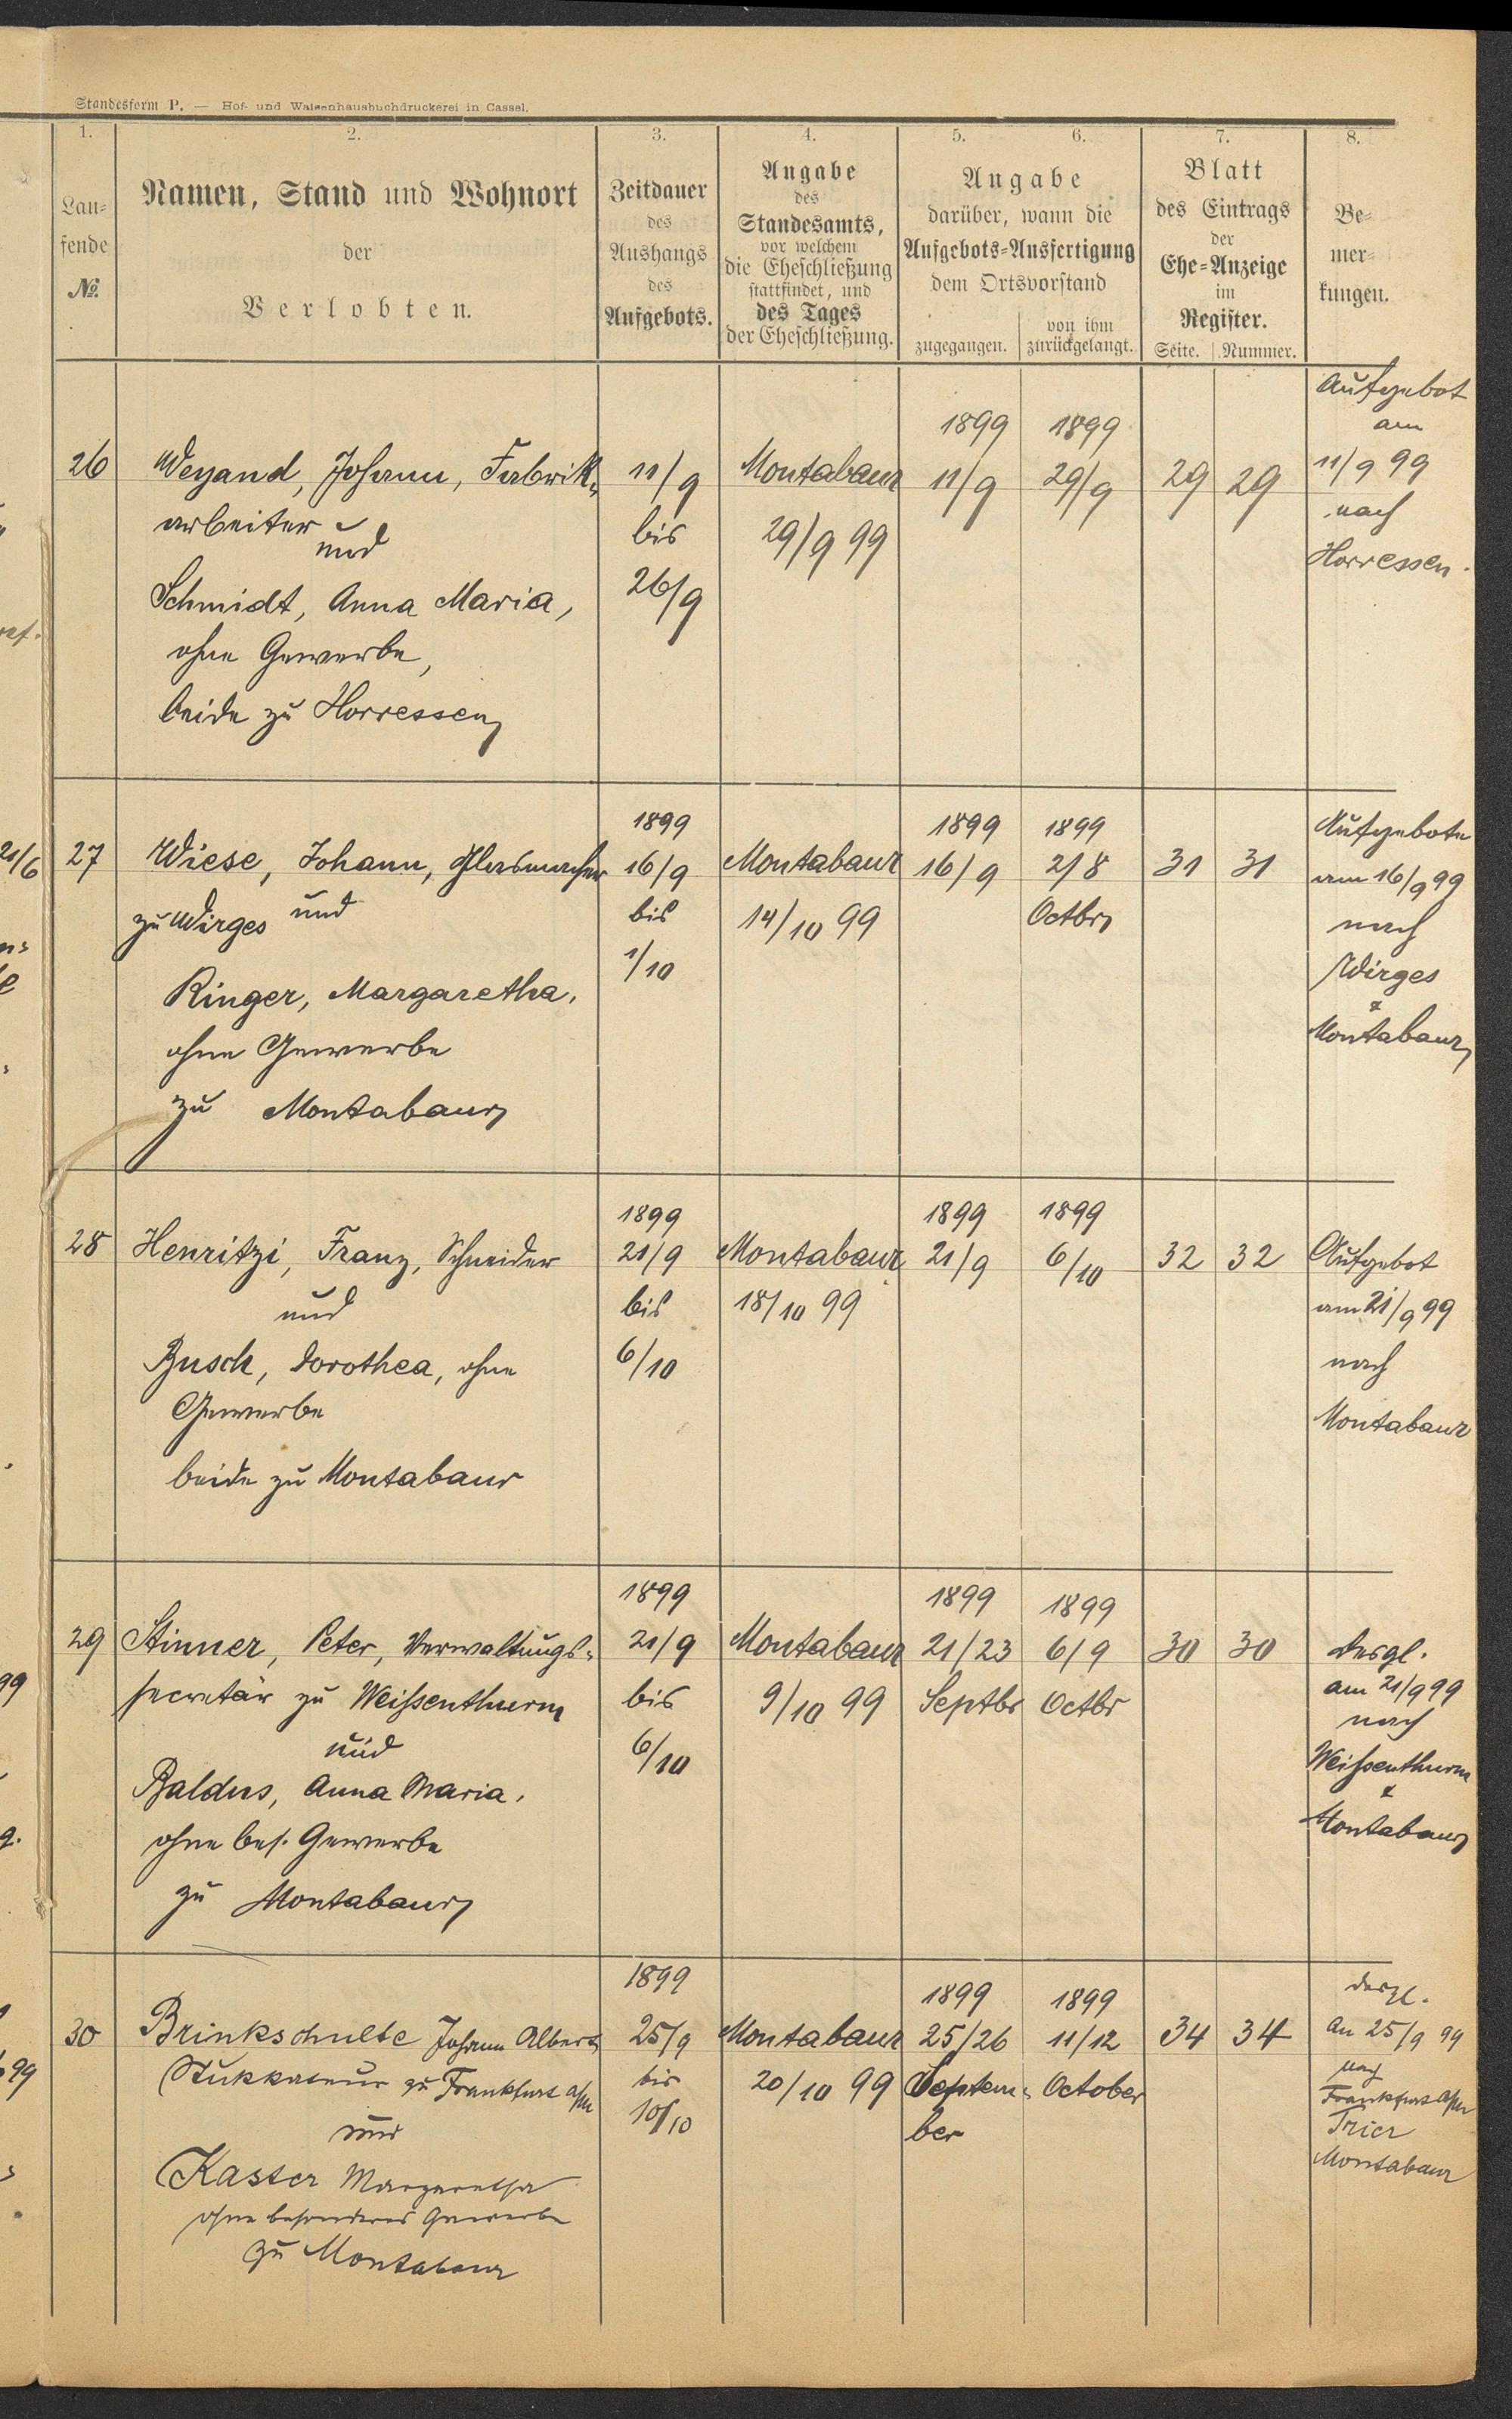 Standesform P. — Hof- und Waisenhausbuchdruckerei in Cassel.
1.
Lau-
fende
No.
2.
Namen, Stand und Wohnort
der
Verlobten.
3.
Zeitdauer
des
Aushangs
des
Aufgebots.
4.
Angabe
des
Standesamts,
vor welchem
die Eheschließung
stattfindet, und
des Tages
der Eheschließung.
5. 6.
Angabe
darüber, wann die
Aufgebots-Ausfertigung
dem Ortsvorstand
zugegangen.
von ihm
zurückgelangt.
7.
Blatt
des Eintrags
der
Ehe-Anzeige
im
Register.
Seite. Nummer.
8.
Be-
mer-
kungen.
26
Weyand, Johann, Fabrik-
arbeiter
und
Schmidt, Anna Maria,
ohne Gewerbe,
beide zu Horressen
11/9
bis
26/9
Montabaur
29/9 99
1899
11/9
1899
29/9
29 29
Aufgebot
am
11/9 99
nach
Horressen.
21/6
27
Wiese, Johann, Glasmacher
zu Wirges und
Ringer, Margaretha,
ohne Gewerbe
zu Montabaur
1899
16/9
bis
1/10
Montabaur
14/10 99
1899
16/9
1899
2/8
Octbr
31 31
Aufgebote
am 16/9 99
nach
Wirges
&
Montabaur
28
Henritzi, Franz, Schneider
und
Busch, Dorothea, ohne
Gewerbe
beide zu Montabaur
1899
21/9
bis
6/10
Montabaur
18/10 99
1899
21/9
1899
6/10
32 32
Aufgebot
am 21/9 99
nach
Montabaur
29
Stinner, Peter, Verwaltungs-
secretär zu Weißenthurm
und
Baldus, Anna Maria,
ohne bes. Gewerbe
zu Montabaur
1899
21/9
bis
6/10
Montabaur
9/10 99
1899
21/23
Septbr
1899
6/9
Octbr
30 30
desgl.
am 21/9 99
nach
Weißenthurm
&
Montabaur
30
Brinkschulte Johann Albert
Stukkateur zu Frankfurt a/M
und
Kaster Margaretha
ohne besonderes Gewerbe
zu Montabaur
1899
25/9
bis
10/10
Montabaur
20/10 99
1899
25/26
Septem-
ber
1899
11/12
October
34 34
desgl.
am 25/9 99
nach
Frankfurt a/M
Trier
Montabaur